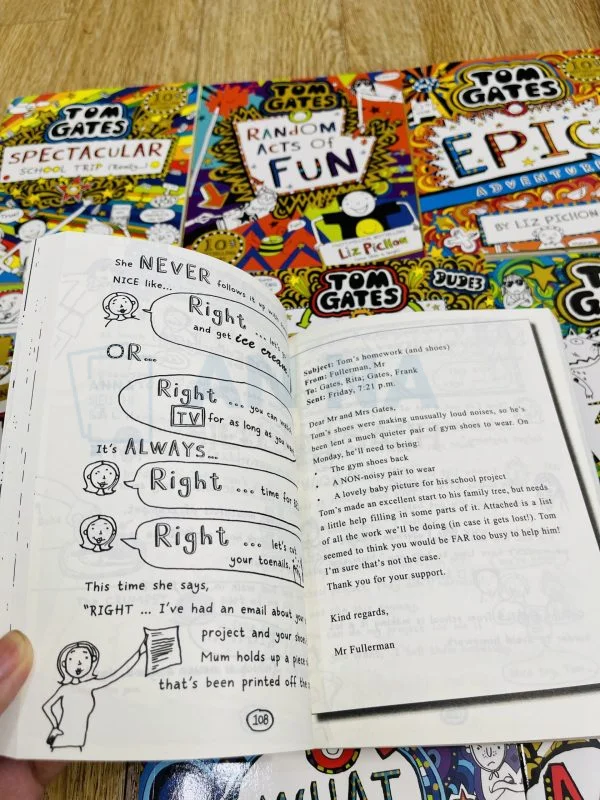 TOM
GATES
SPECTACULAR
SCHOOL TRIP (Really...)
TOM
GATES
RANDOM
ACTS of
FUN
LIZ PICHON
TOM
GATES
EPIC
ADVENTURE
BY LIZ PICHON
TOM
GATES
DUDES
She NEVER follows it up with
NICE like...
Right ... let's
and get ice cream
OR...
Right ... you can
TV for as long as you
It's ALWAYS...
Right ... time for
Right ... let's cut
your toenails.
This time she says,
"RIGHT ... I've had an email about
project and your
Mum holds up a piece
that's been printed off the
108
Subject: Tom's homework (and shoes)
From: Fullerman, Mr
To: Gates, Rita; Gates, Frank
Sent: Friday, 7:21 p.m.
Dear Mr and Mrs Gates,
Tom's shoes were making unusually loud noises, so he's
been lent a much quieter pair of gym shoes to wear. On
Monday, he'll need to bring:
• The gym shoes back
• A NON-noisy pair to wear
• A lovely baby picture for his school project
Tom's made an excellent start to his family tree, but needs
a little help filling in some parts of it. Attached is a list
of all the work we'll be doing (in case it gets lost!). Tom
seemed to think you would be FAR too busy to help him!
I'm sure that's not the case.
Thank you for your support.
Kind regards,
Mr Fullerman
WHAT